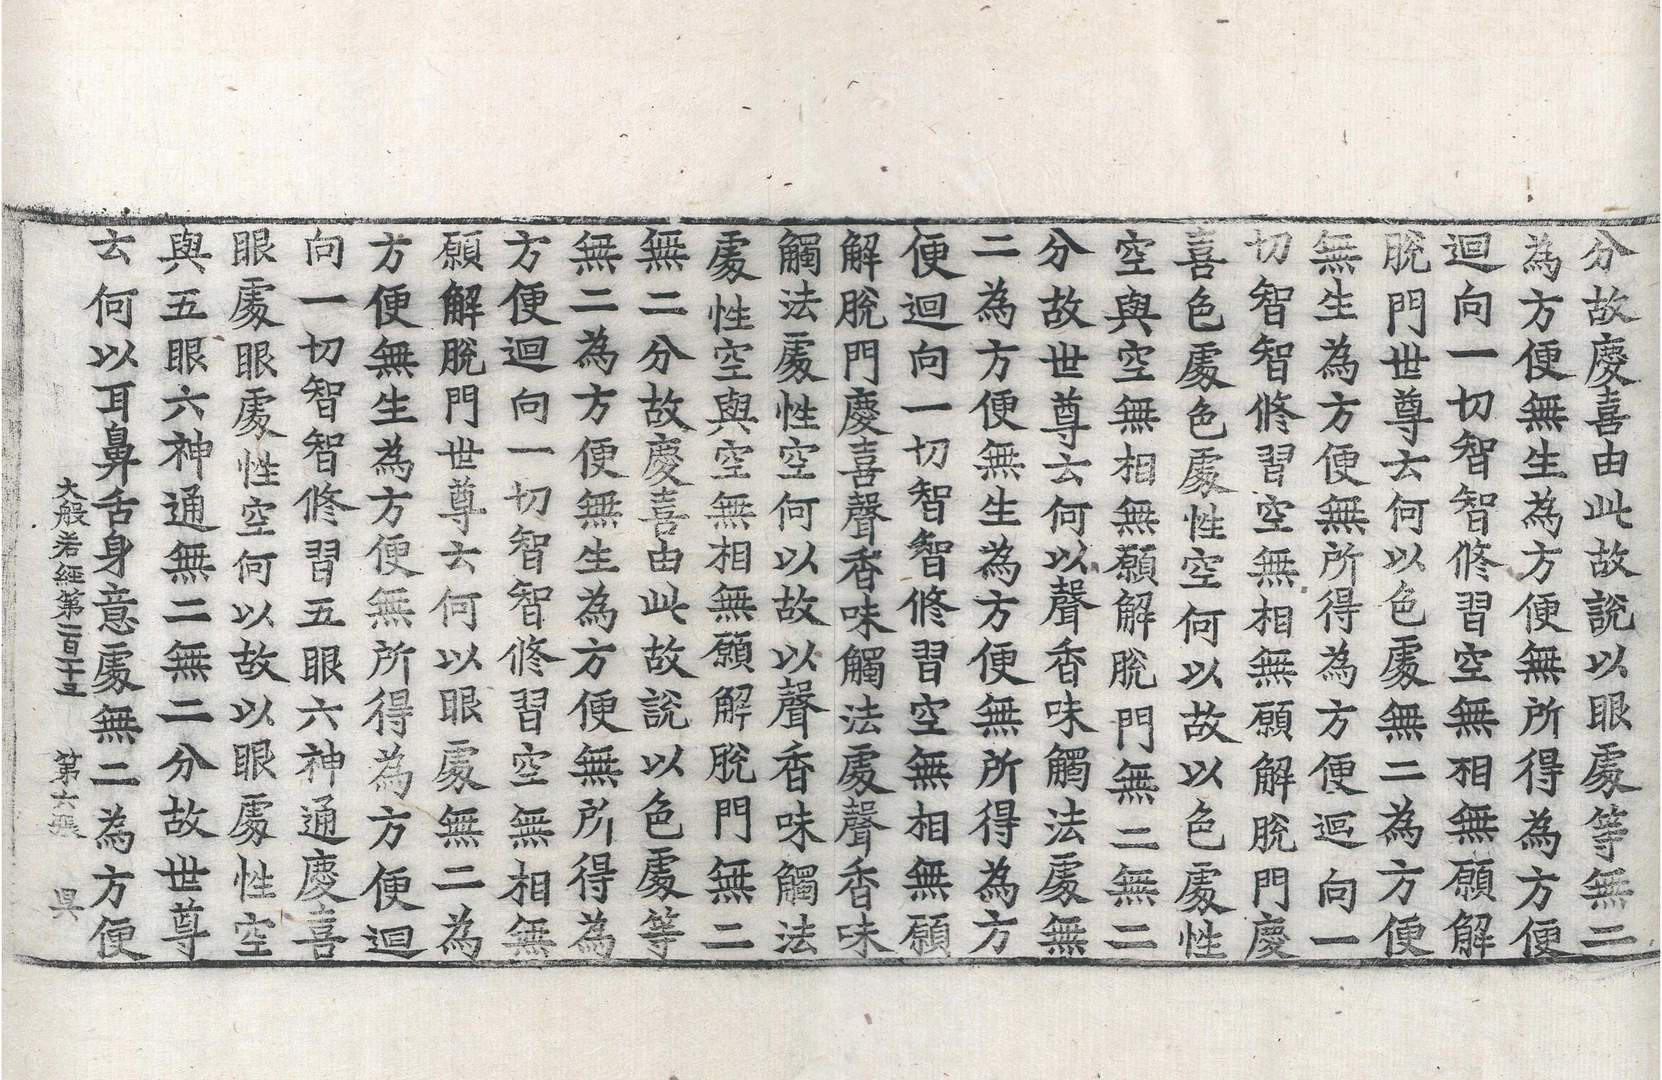 分故慶喜由此故說以眼處等無二
為方便無生為方便無所得為方便
迴向一切智智修習空無相無願解
脫門世尊云何以色處無二為方便
無生為方便無所得為方便迴向一
切智智修習空無相無願解脫門慶
喜色處色處性空何以故以色處性
空與空無相無願解脫門無二無二
分故世尊云何以聲香味觸法處無
二為方便無生為方便無所得為方
便迴向一切智智修習空無相無願
解脫門慶喜聲香味觸法處聲香味
觸法處性空何以故以聲香味觸法
處性空與空無相無願解脫門無二
無二分故慶喜由此故說以色處等
無二為方便無生為方便無所得為
方便迴向一切智智修習空無相無
願解脫門世尊云何以眼處無二為
方便無生為方便無所得為方便迴
向一切智智修習五眼六神通慶喜
眼處眼處性空何以故以眼處性空
與五眼六神通無二無二分故世尊
云何以耳鼻舌身意處無二為方便
大般若經第一百十五 第六張 昃